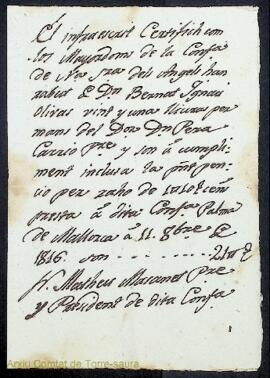 El infraescrit Certifich com
los Mayordoms de la Confa
de Na. Sra. dels Angels han
rebut de Dn Bernat Ignaci
Olivas vint y una lliura per
mans del Dor Dn Pera
pre y son á cumpli-
ment inclusa la pnt pen-
cio per raho de
á dita Confa Palma
de Mallorca á 11 8bre de
1816. son - - - - - - 21
Matheu Masanet Pre
y President de dita Confa
Arxiu Comtat de Torre-saura